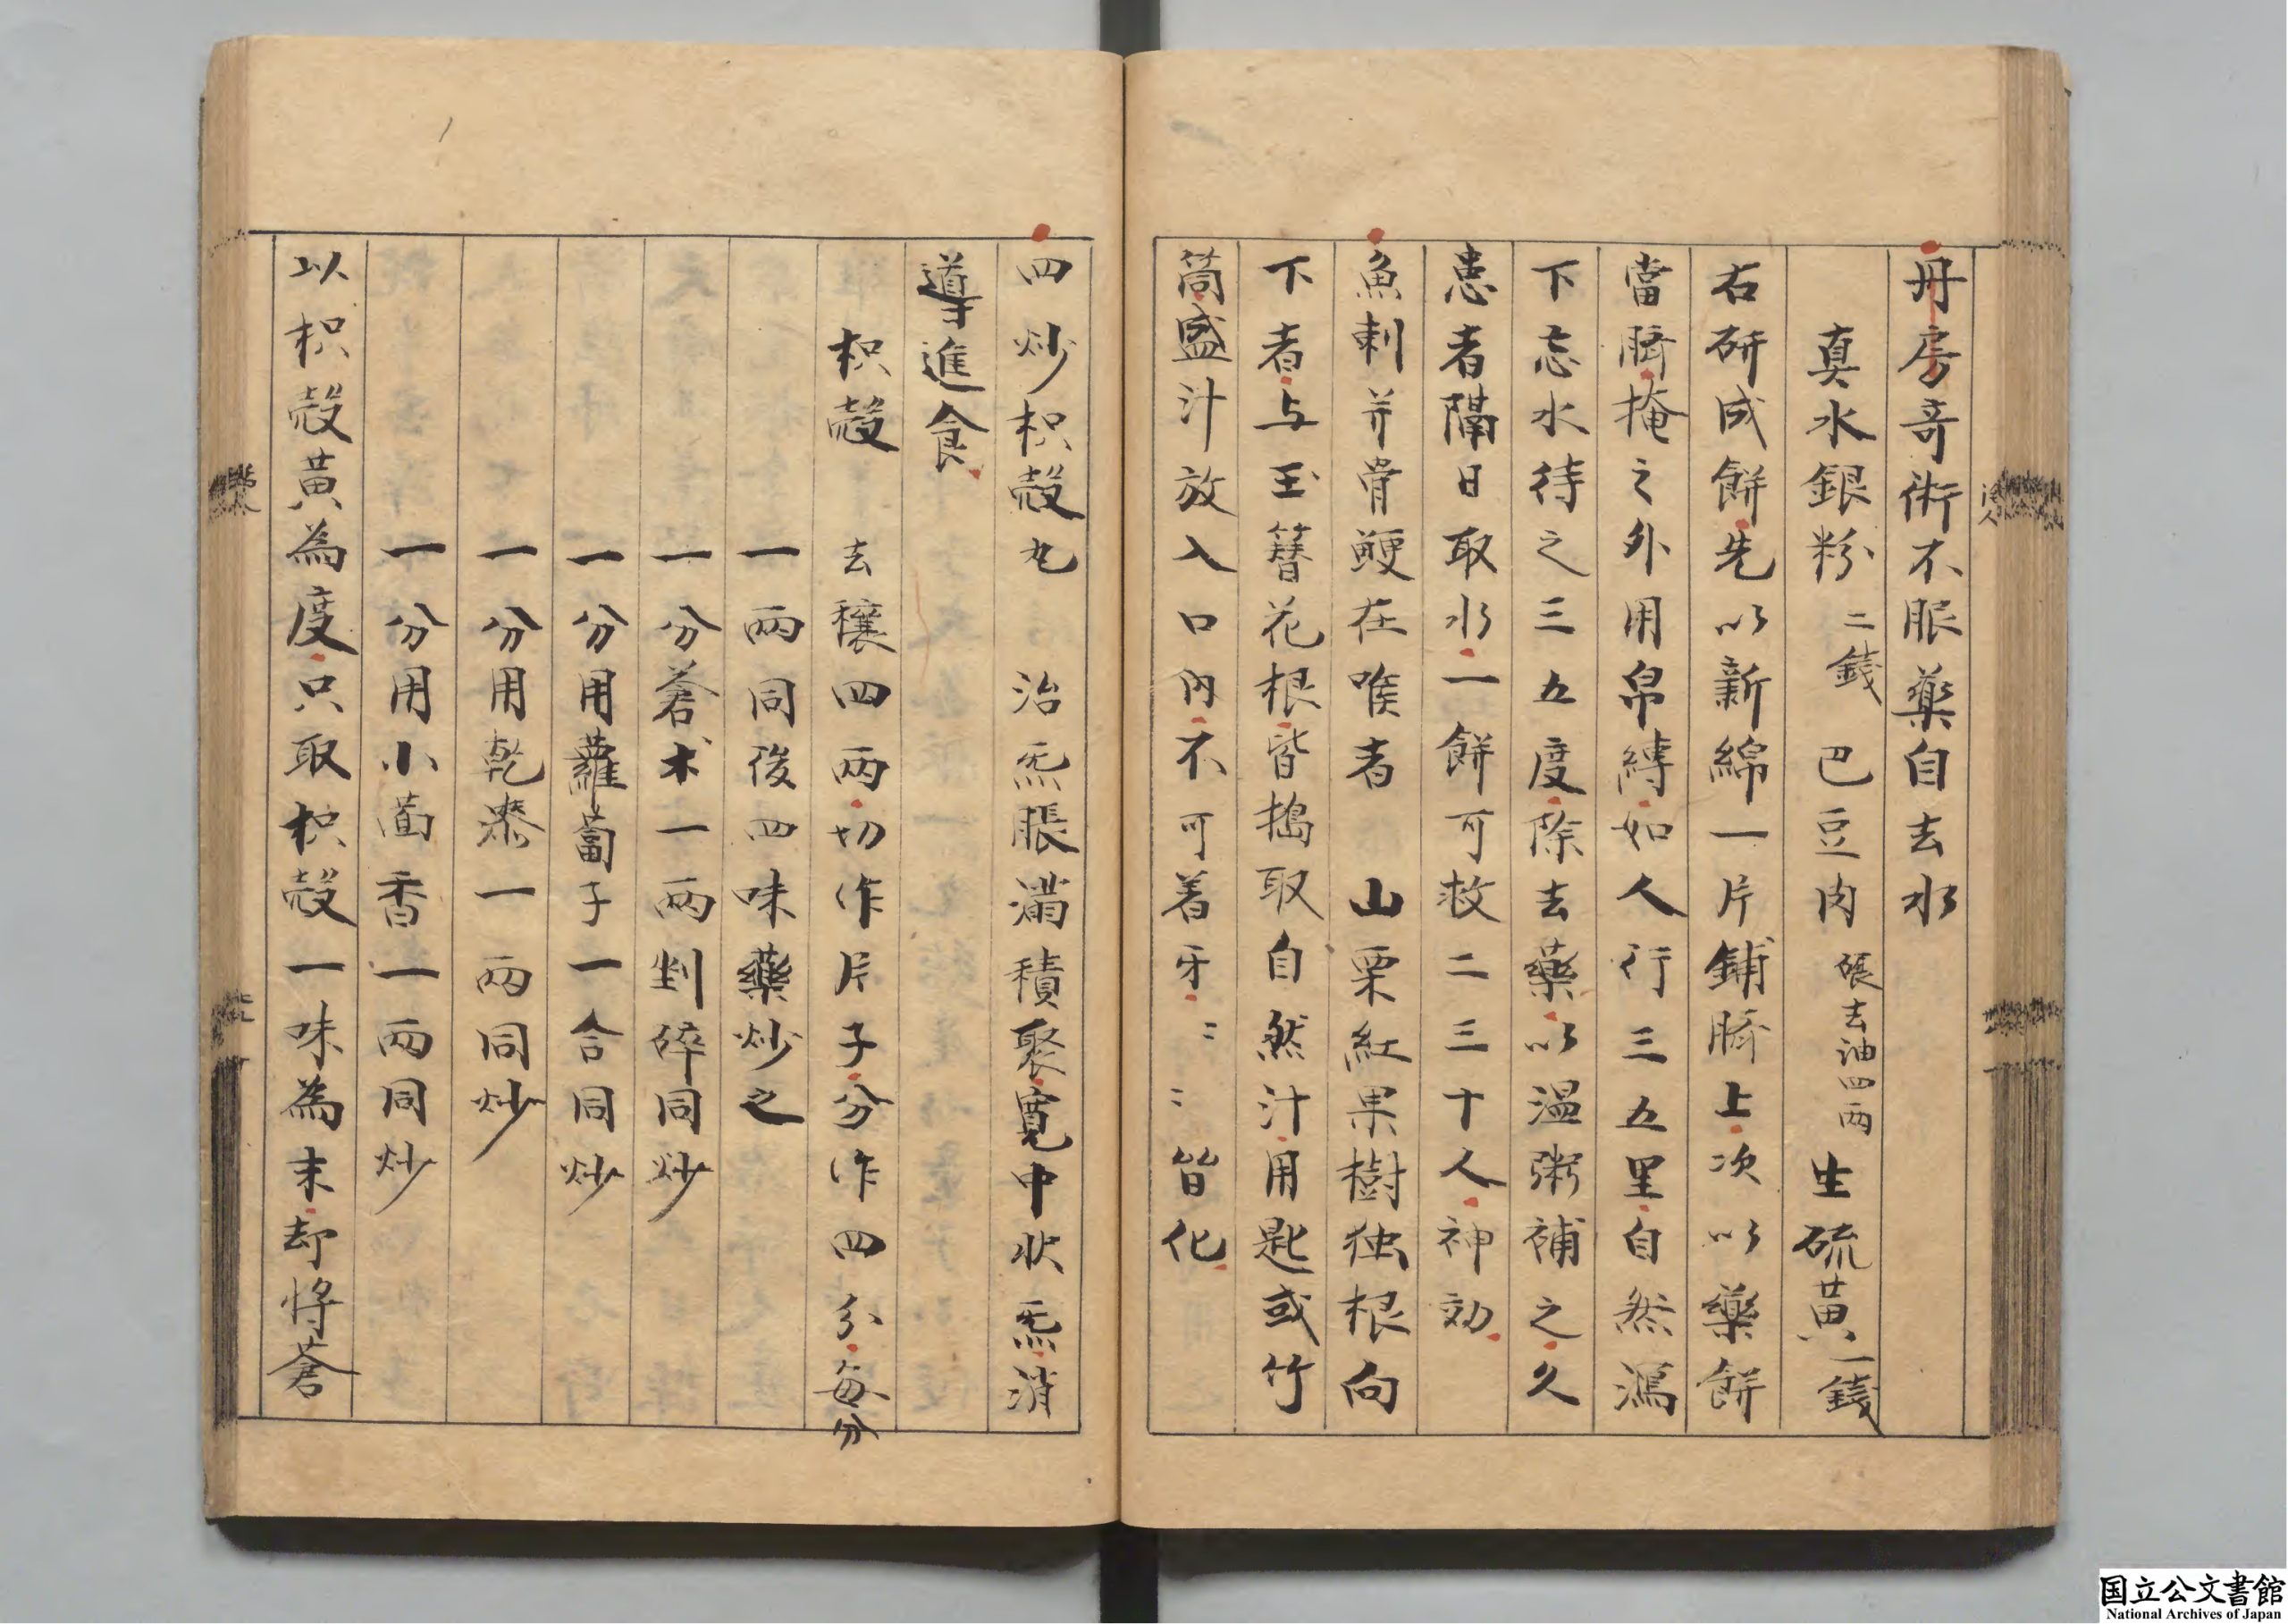 丹房奇術不服藥自去水
真水銀粉二錢 巴豆肉 去油四兩 生硫黃一錢
右研成餅先以新綿一片鋪臍上次以藥餅
當臍掩之外用帛縛如人行三五里自然瀉
下忘水待之三五度除去藥以温粥補之久
患者隔日取水一餅可救二三十人神効
魚刺并骨鯁在喉者 山栗紅果樹独根向
下者与玉簪花根皆搗取自然汁用匙或竹
筒盛汁放入口内不可着牙〻〻皆化
四炒枳殻丸 治炁脹滿積聚寛中状炁消
導進食
枳殻 去穰四兩切作片子分作四分每分
一兩同後四味藥炒之
一分蒼术一兩剉碎同炒
一分用蘿蔔子一合同炒
一分用乾漆一兩同炒
一分用小茴香一兩同炒
以枳殻黃為度只取枳殻一味為末却将蒼
国立公文書館
National Archives of Japan